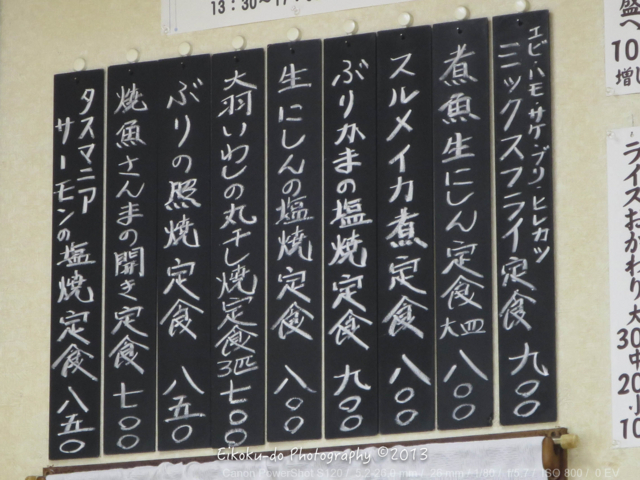 13:30～17:
エビ・ハモ・サケ・ブリ・ヒレカツ
ミックスフライ定食 九〇〇
煮魚生にしん定食 大皿 八〇〇
スルメイカ煮定食 八〇〇
ぶりかまの塩焼定食 九〇〇
生にしんの塩焼定食 八〇〇
大羽いわしの丸干し焼定食3匹 七〇〇
ぶりの照焼定食 八五〇
焼魚さんまの開き定食 七〇〇
タスマニア
サーモンの塩焼定食 八五〇
ライスおかわり 大
30
中
20
小
10
Eikoku-do Photography ©2013